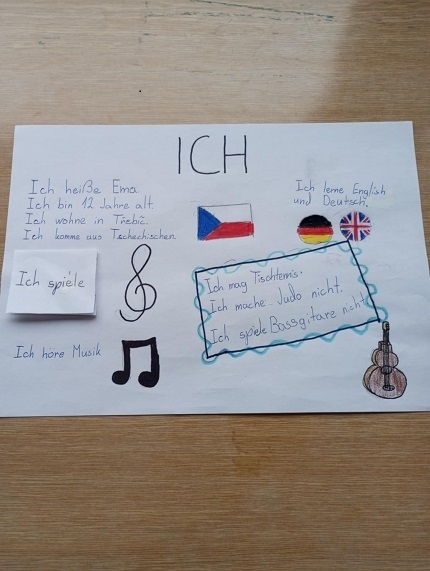 ICH
Ich heiße Ema
Ich bin 12 Jahre alt.
Ich wohne in Třebíč
Ich komme aus Tschechischen
Ich lerne English
und Deutsch.
Ich spiele
Ich mag Tischtennis.
Ich mache Judo nicht.
Ich spiele Bassgitare nicht
Ich höre Musik